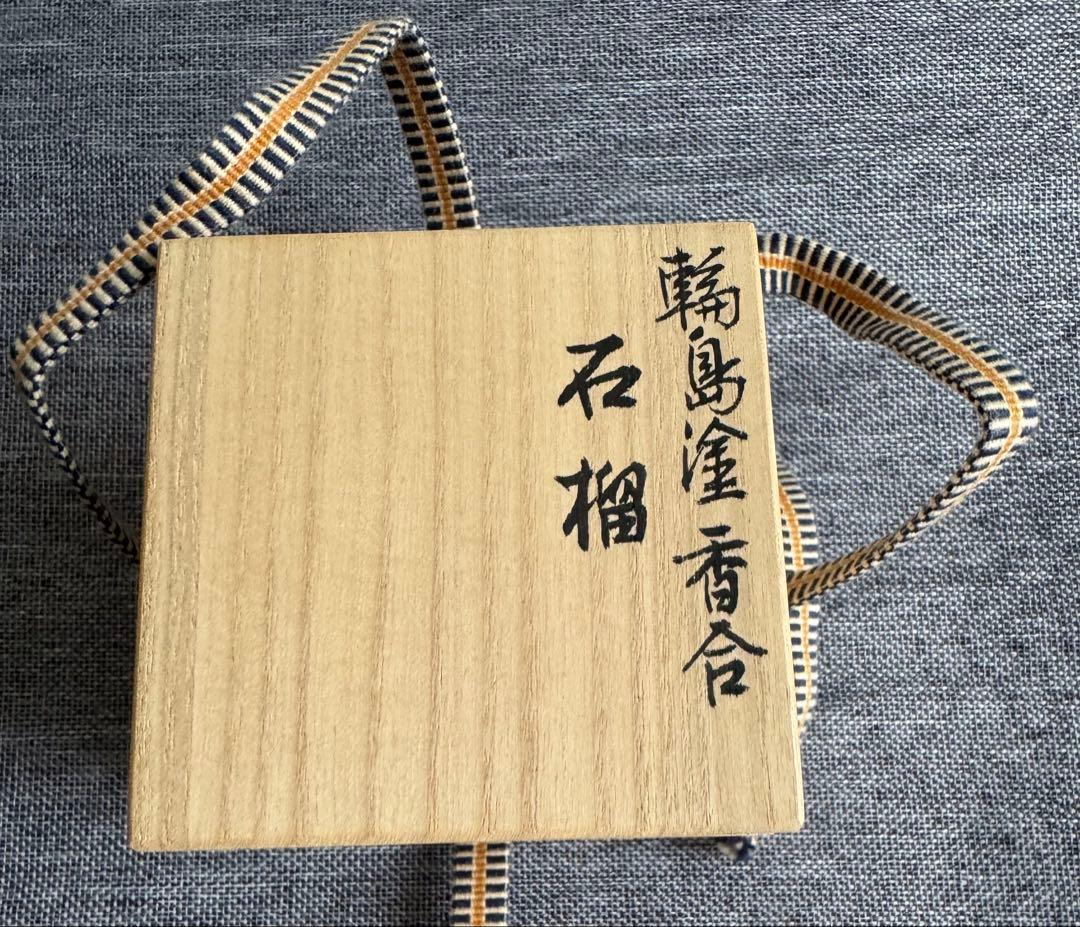 輪島塗香合
石榴